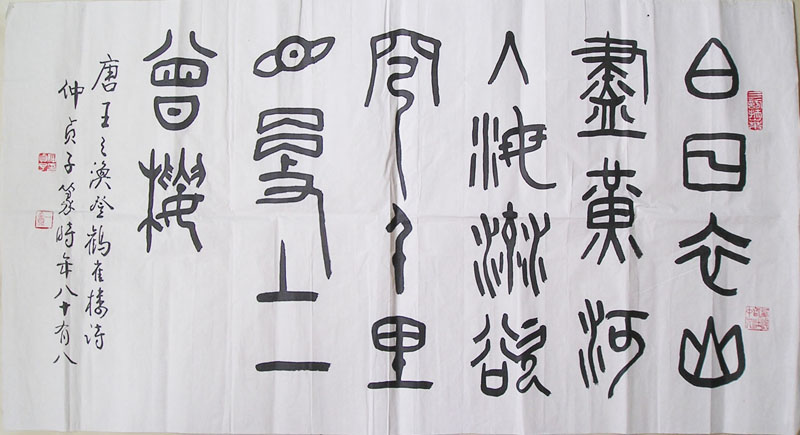 白日衣山
盡黃河
入海流欲
窮千里
目更上一
曾樓
唐王之渙登鶴雀樓詩
仲貞子篆時年八十有八